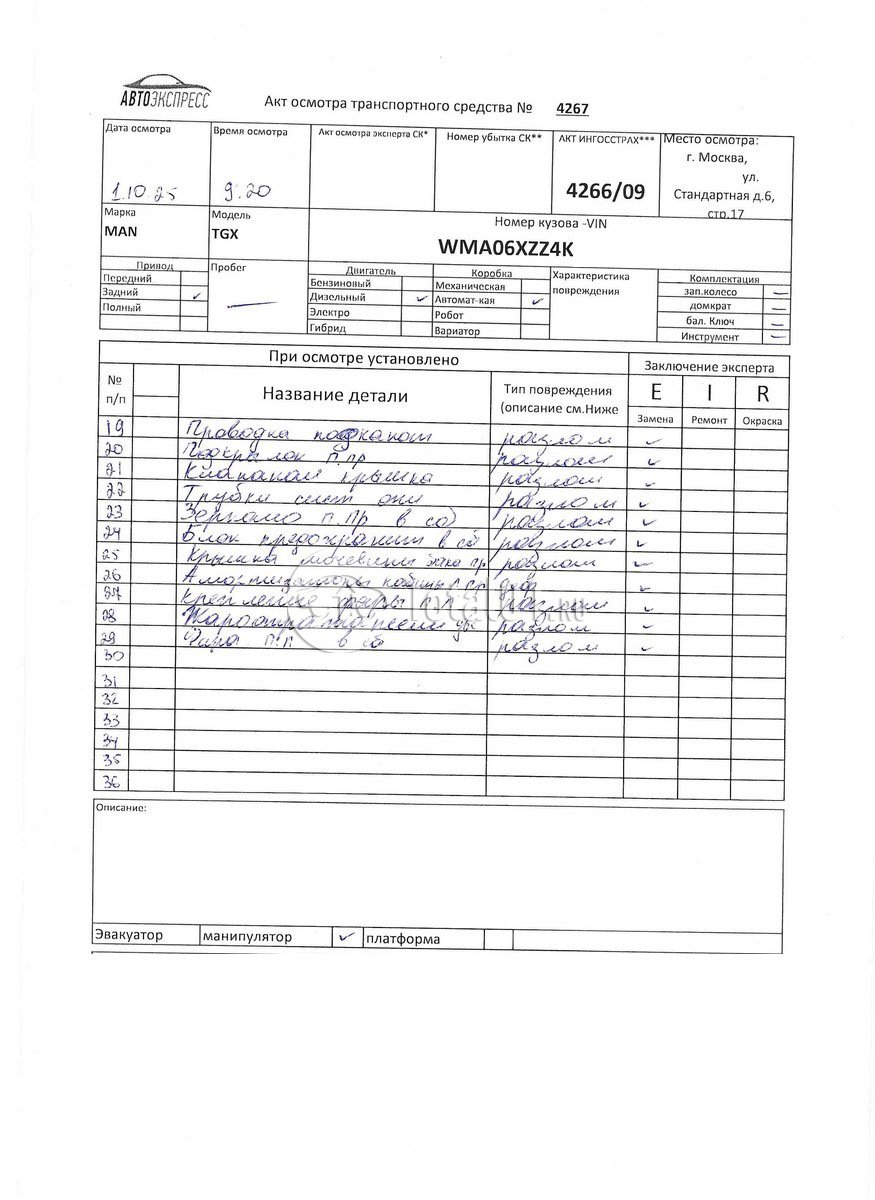 АВТОЭКСПРЕСС
Акт осмотра транспортного средства № 4267
Дата осмотра
1.10.25
Время осмотра
9:20
Акт осмотра эксперта СК*
Номер убытка СК**
АКТ ИНГОССТРАХ***
4266/09
Место осмотра:
г. Москва,
ул.
Стандартная д.6,
стр.17
Марка
MAN
Модель
TGX
Номер кузова -VIN
WMA06XZZ4K
Привод
Передний
Задний ✓
Полный
Пробег
—
Двигатель
Бензиновый
Дизельный ✓
Электро
Гибрид
Коробка
Механическая
Автомат-кая ✓
Робот
Вариатор
Характеристика
повреждения
Комплектация
зап.колесо —
домкрат —
бал. Ключ —
Инструмент —
При осмотре установлено
Заключение эксперта
№
п/п
Название детали
Тип повреждения
(описание см.Ниже
E I R
Замена Ремонт Окраска
19 Проводка разлом ✓
20 Подкрылок п.пр разлом ✓
21 крышка разлом ✓
22 Трубки сист разлом ✓
23 Зеркало п.пр в сб разлом ✓
24 Блок в сб разлом ✓
25 Крышка разлом ✓
26 кабины ✓
27 крепление фары разлом ✓
28 разлом ✓
29 Фара п.п в сб разлом ✓
30
31
32
33
34
35
36
Описание:
Эвакуатор манипулятор ✓ платформа